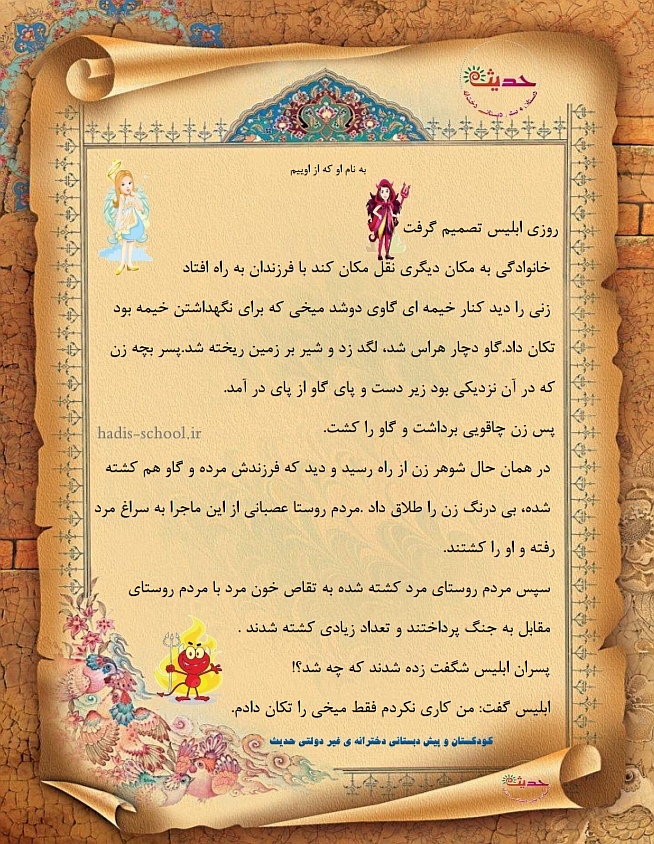 حدیث
به نام او که از اوییم
روزی ابلیس تصمیم گرفت
خانوادگی به مکان دیگری نقل مکان کند با فرزندان به راه افتاد
زنی را دید کنار خیمه ای گاوی دوشد میخی که برای نگهداشتن خیمه بود
تکان داد.گاو دچار هراس شد، لگد زد و شیر بر زمین ریخته شد.پسر بچه زن
که در آن نزدیکی بود زیر دست و پای گاو از پای در آمد.
پس زن چاقویی برداشت و گاو را کشت.
hadis-school.ir
در همان حال شوهر زن از راه رسید و دید که فرزندش مرده و گاو هم کشته
شده، بی درنگ زن را طلاق داد .مردم روستا عصبانی از این ماجرا به سراغ مرد
رفته و او را کشتند.
سپس مردم روستای مرد کشته شده به تقاص خون مرد با مردم روستای
مقابل به جنگ پرداختند و تعداد زیادی کشته شدند .
پسران ابلیس شگفت زده شدند که چه شد؟!
ابلیس گفت: من کاری نکردم فقط میخی را تکان دادم.
کودکستان و پیش دبستانی دخترانه ی غیر دولتی حدیث
حدیث